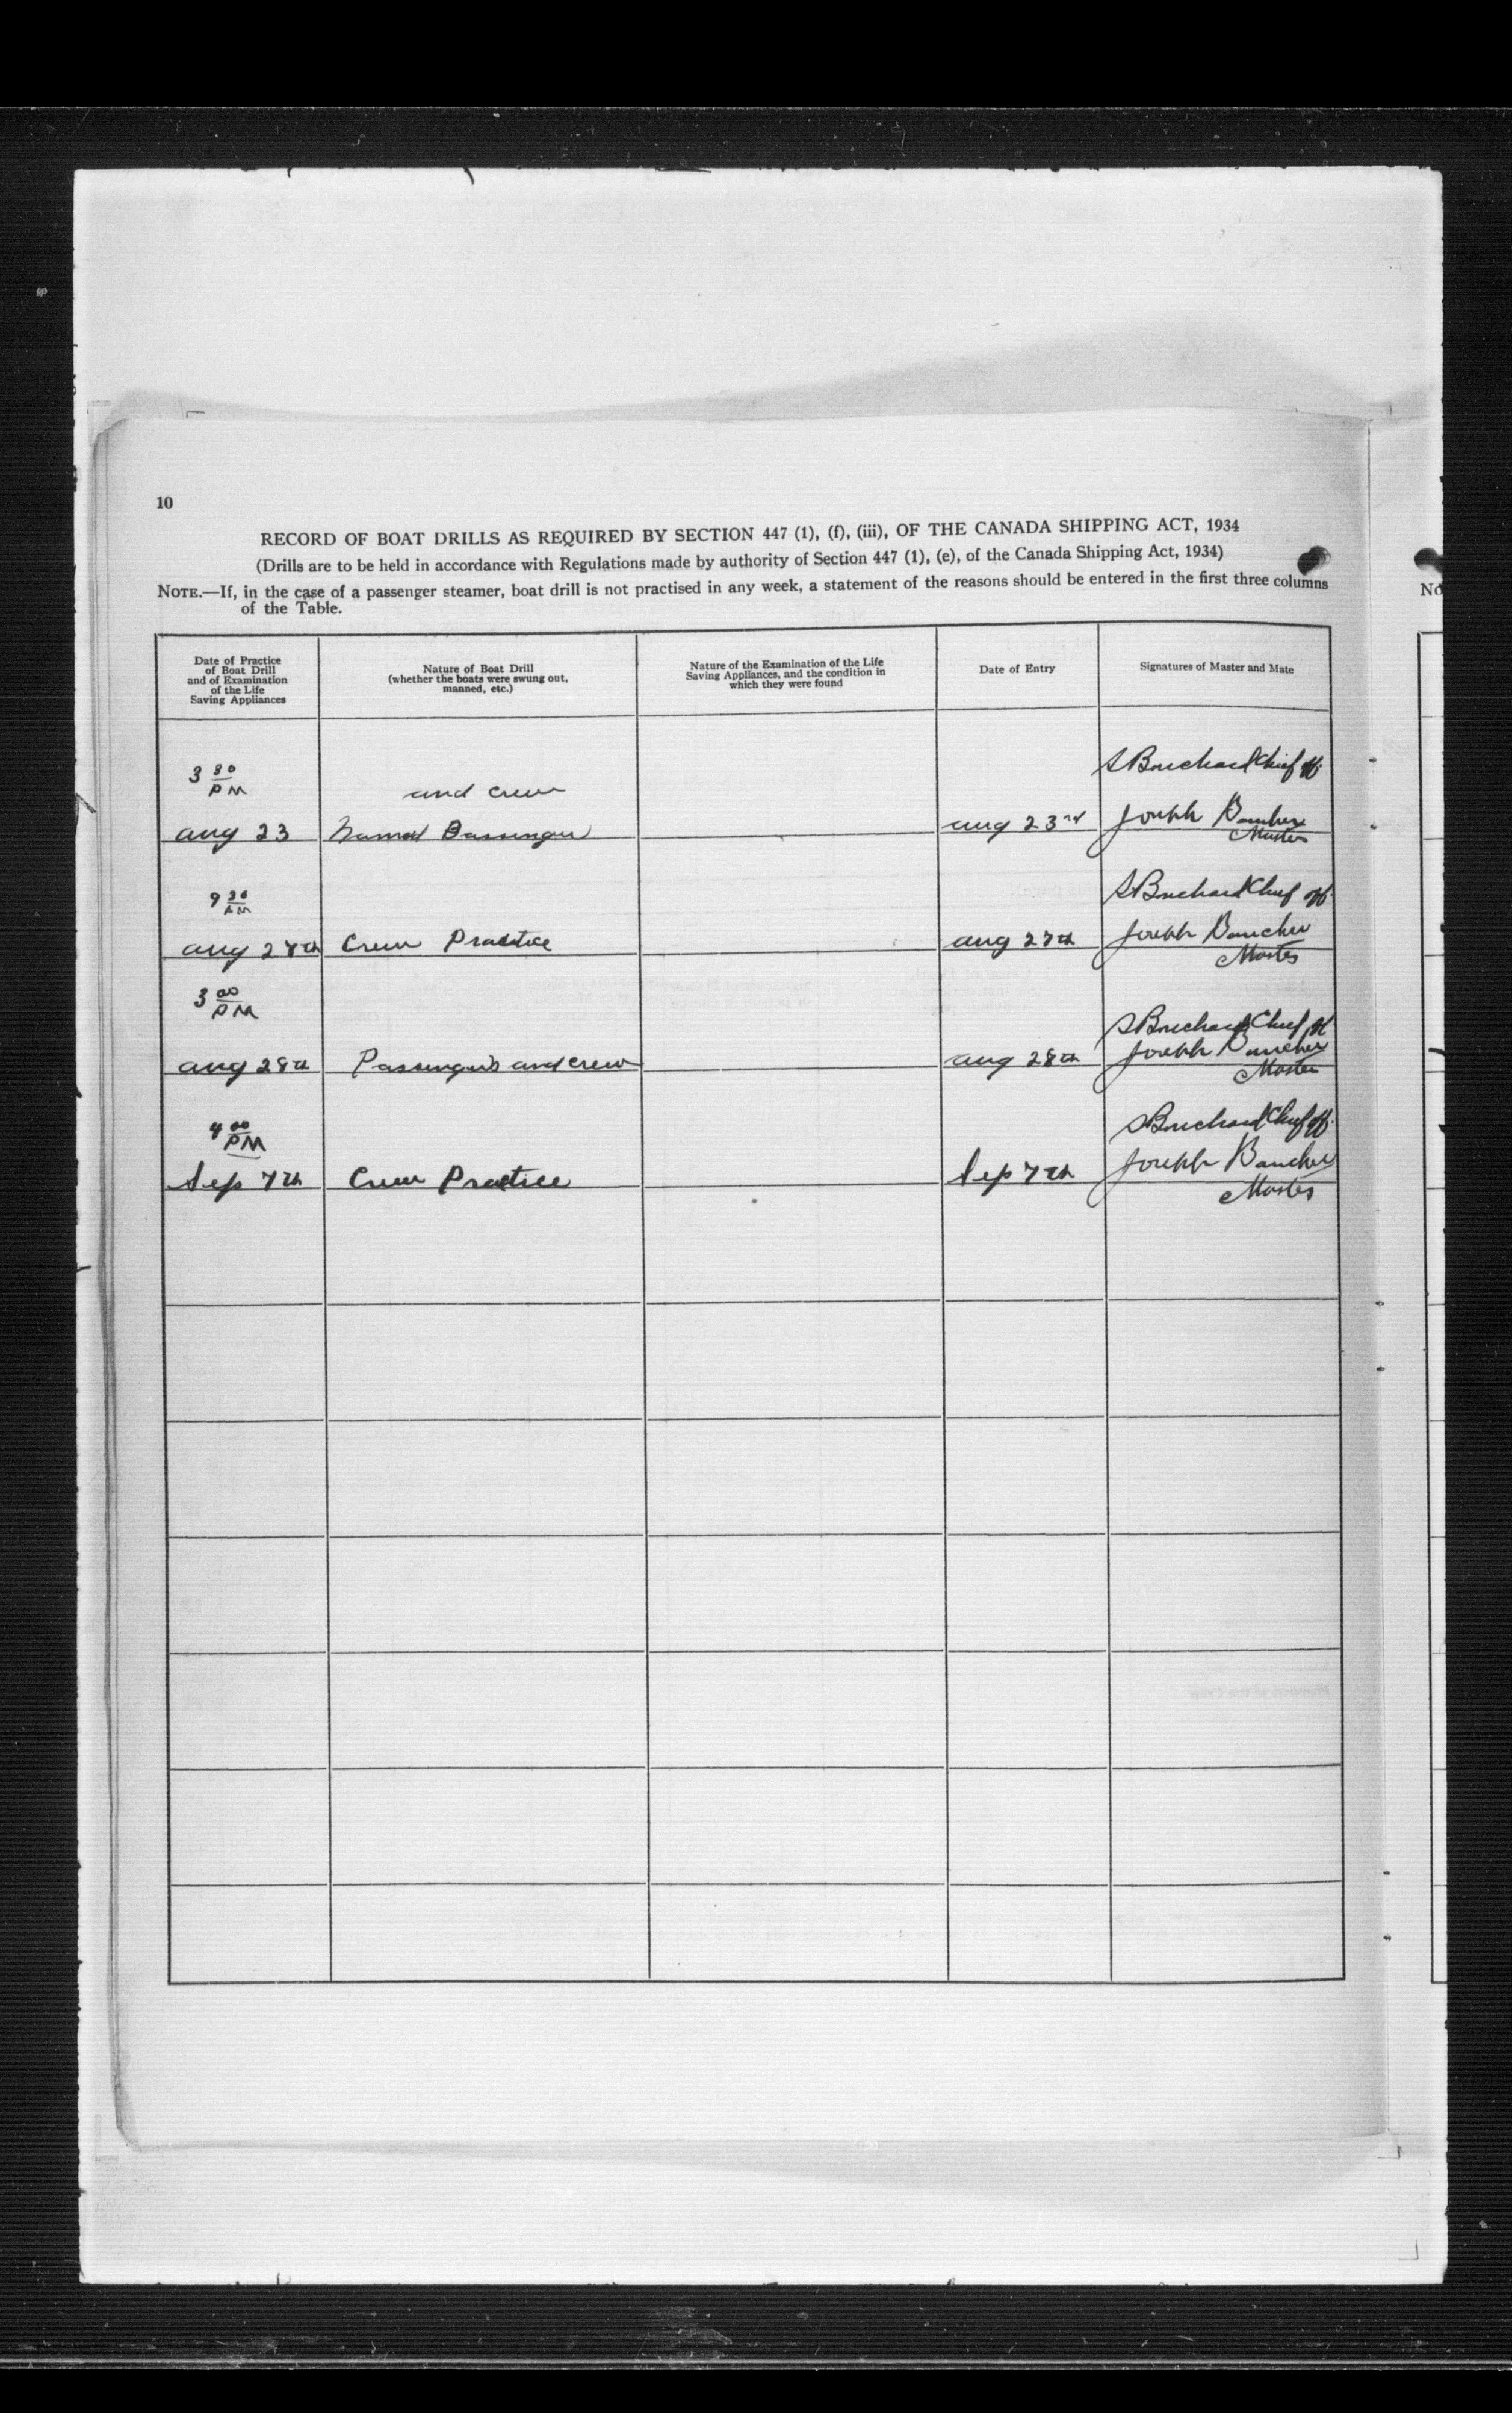 10
RECORD OF BOAT DRILLS AS REQUIRED BY SECTION 447 (1), (f), (iii), OF THE CANADA SHIPPING ACT, 1934
(Drills are to be held in accordance with Regulations made by authority of Section 447 (1), (e), of the Canada Shipping Act, 1934)
NOTE.—If, in the case of a passenger steamer, boat drill is not practised in any week, a statement of the reasons should be entered in the first three columns
of the Table.
No
Date of Practice
of Boat Drill
and of Examination
of the Life
Saving Appliances
Nature of Boat Drill
(whether the boats were swung out,
manned, etc.)
Nature of the Examination of the Life
Saving Appliances, and the condition in
which they were found
Date of Entry
Signatures of Master and Mate
3 30 PM
and crew
S Bouchard Chief off.
aug 23
aug 23rd
Joseph
Master
9 30
S Bouchard Chief off.
aug 27th
Crew Practice
aug 27th
Joseph
Master
3 00 PM
S Bouchard Chief off
aug 28th
Passengers and crew
aug 28th
Joseph
Master
4 00 PM
S Bouchard Chief off.
Sep 7th
Crew Practice
Sep 7th
Joseph
Master